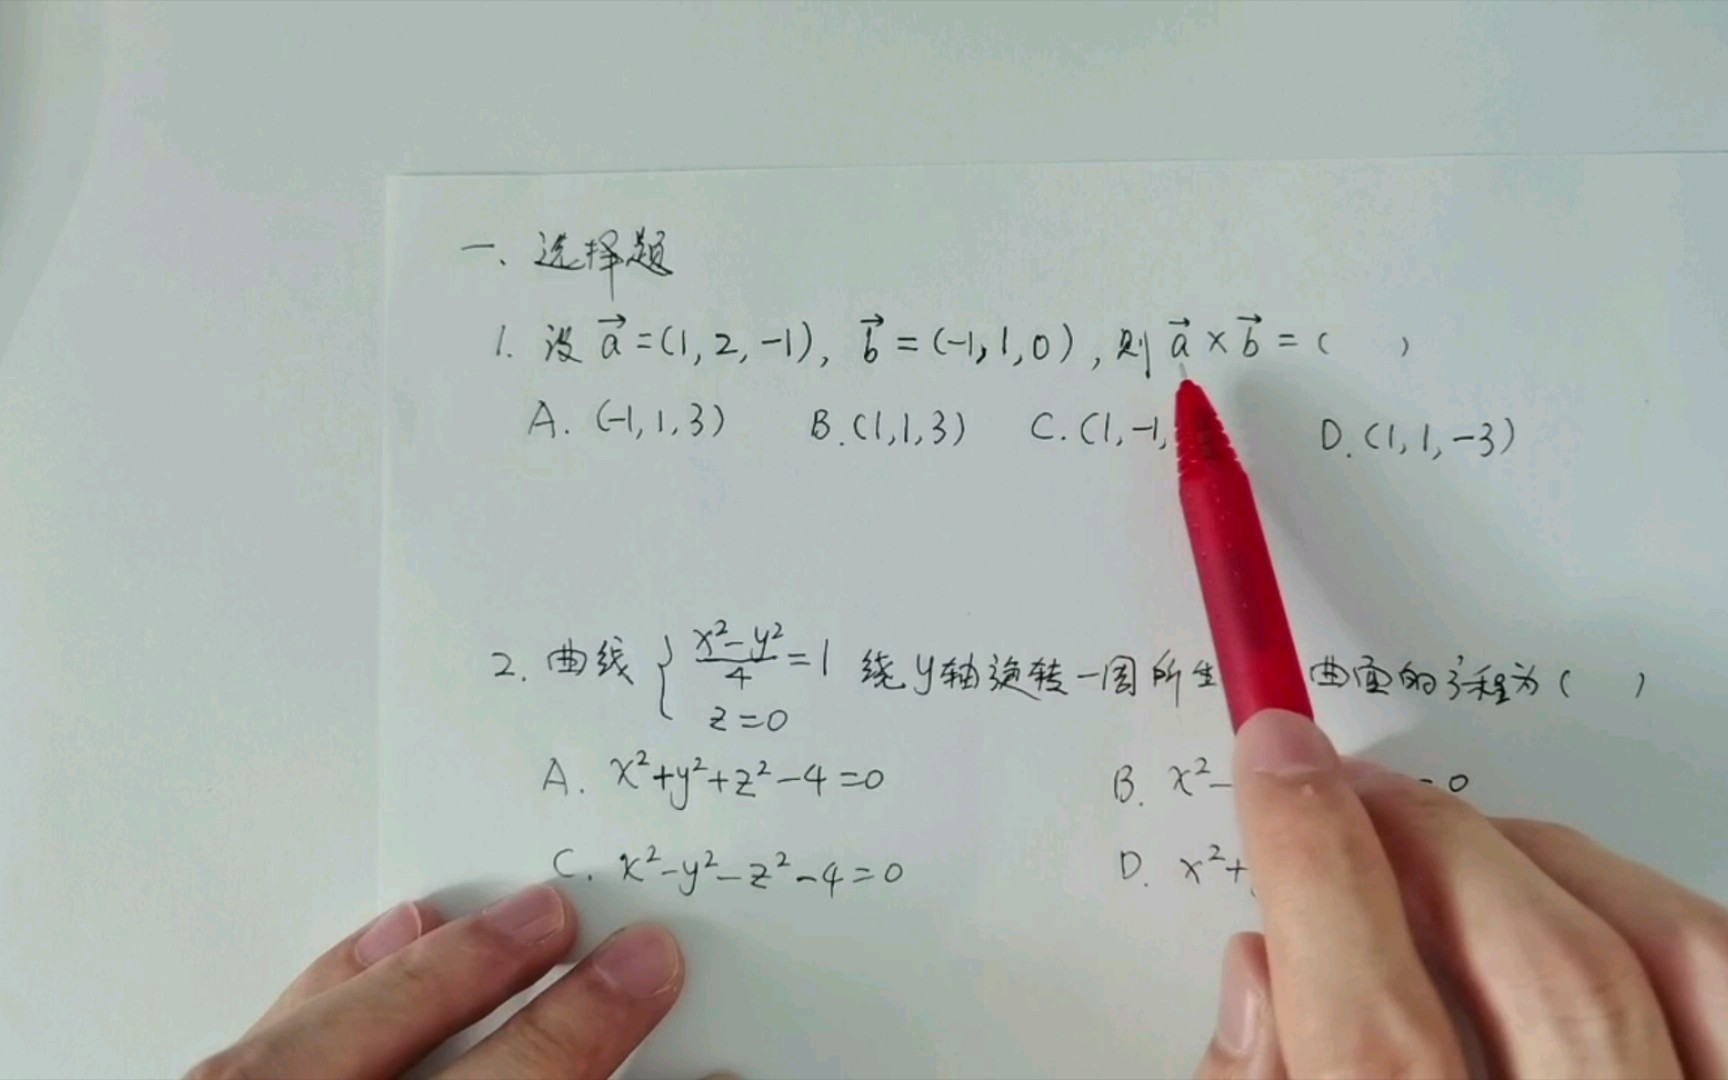 一、选择题
1. 设 a⃗=(1,2,-1), b⃗=(-1,1,0), 则 a⃗×b⃗=( )
A. (-1,1,3) B. (1,1,3) C. (1,-1, D. (1,1,-3)
2. 曲线 { (x²-y²)/4=1 绕y轴旋转一周所生 曲面的方程为( )
z=0
A. x²+y²+z²-4=0 B. x²- =0
C. x²-y²-z²-4=0 D. x²+